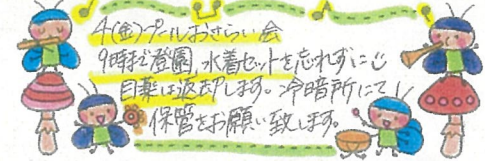 4(金)プールおさらい会
9時まで登園、水着セットを忘れずに
目薬は返却します。冷暗所にて
保管をお願い致します。